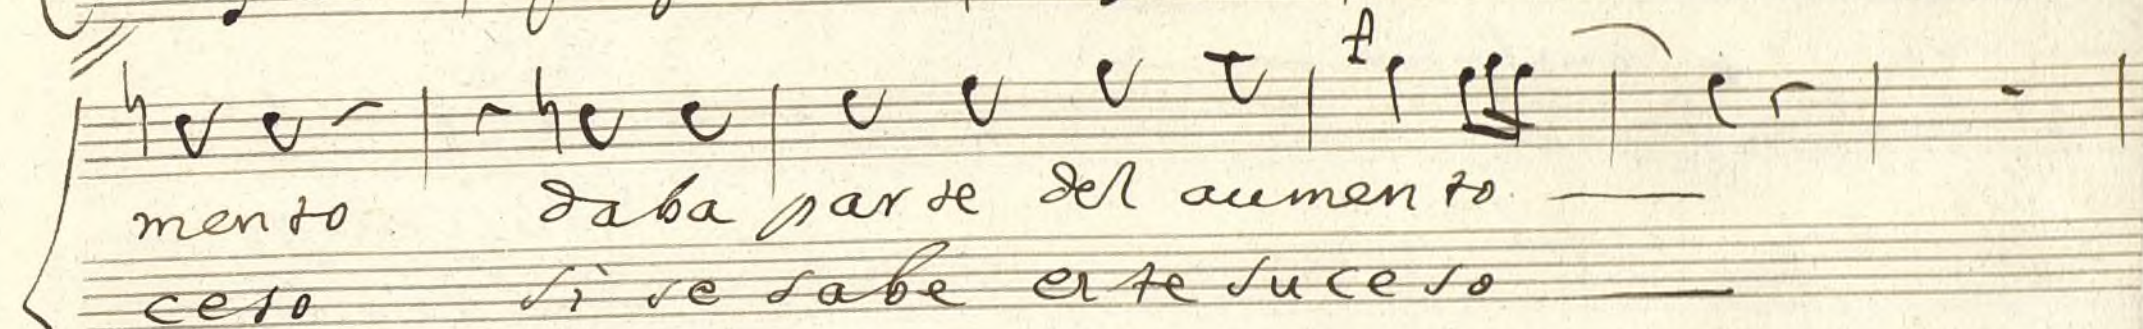 mento daba parte del aumento
ceso si se sabe este suceso